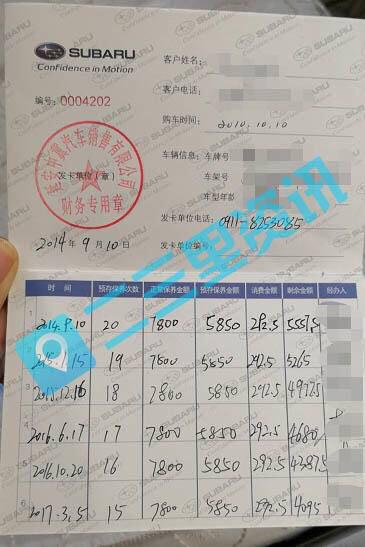 SUBARU
Confidence in Motion
编号: 0004202
客户姓名:
客户电话:
购车时间: 2010.10.10
车辆信息: 车牌号
车架号
车型年款
汽车销售有限公司
发卡单位(章)
财务专用章
发卡单位电话: 0911-8253085
2014年9月10日
发卡单位编号:
二三里资讯
时 间 预存保养次数 正常保养金额 预存保养金额 消费金额 剩余金额 经办人
1 2014.9.10 20 7800 5850 292.5 5557.5
2015.1.15 19 7800 5850 292.5 5265
2015.12.16 18 7800 5850 292.5 4972.5
2016.6.17 17 7800 5850 292.5 4680
2016.10.20 16 7800 5850 292.5 4387.5
6 2017.3.5 15 7800 5850 292.5 4095